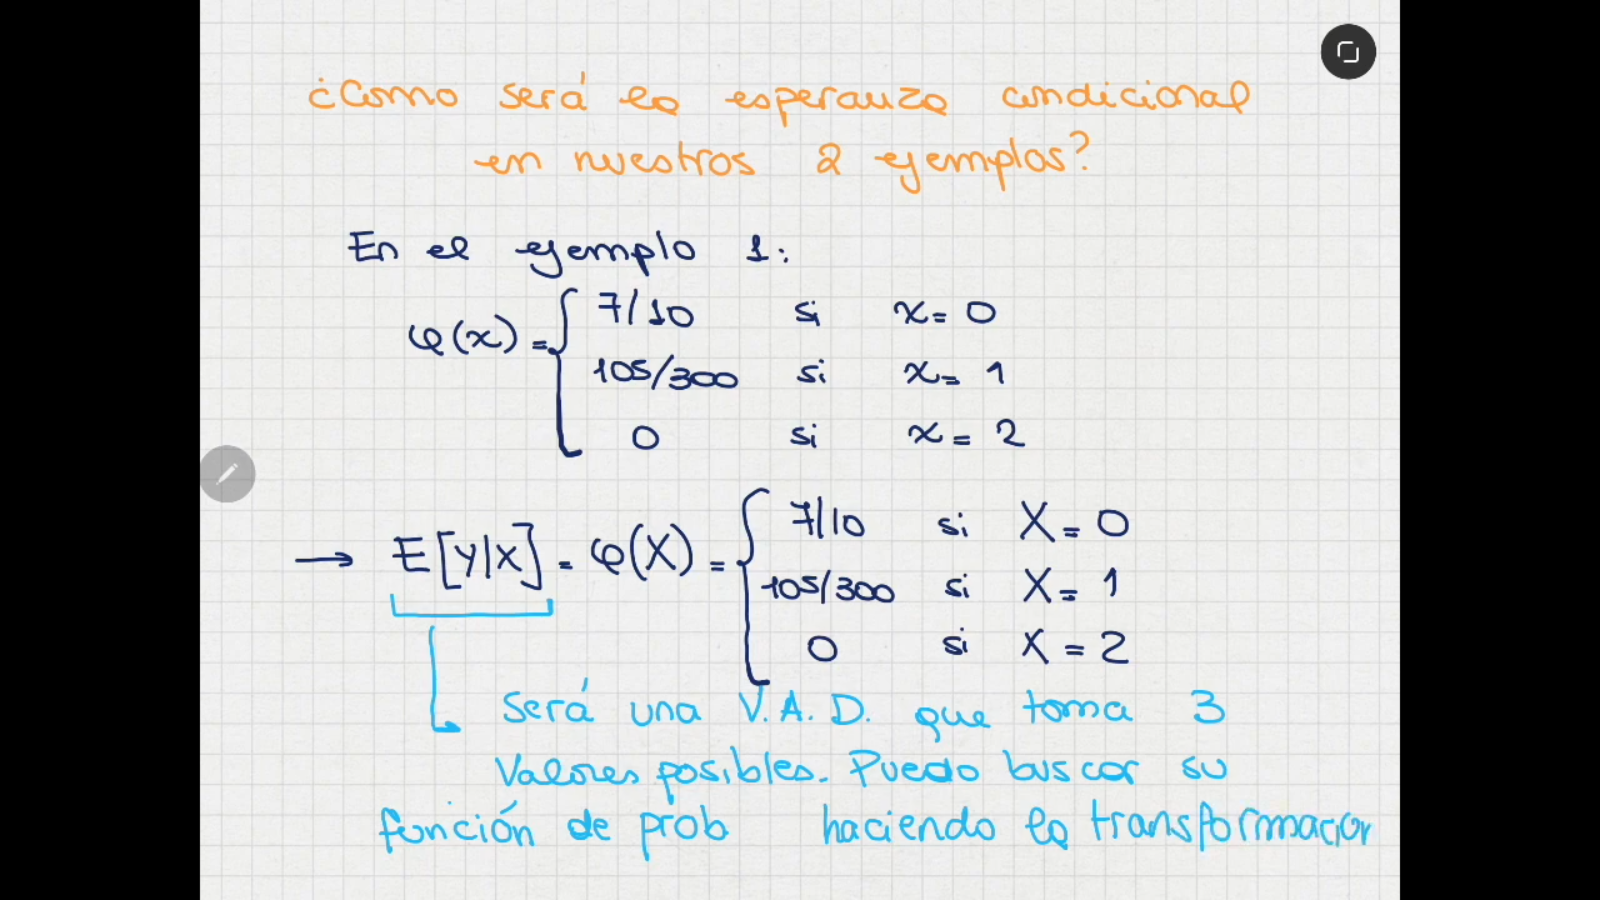 ¿Como será la esperanza condicional
en nuestros 2 ejemplos?
En el ejemplo 1:
φ(x) = { 7/10 si x = 0
105/300 si x = 1
0 si x = 2
→ E[Y|X] = φ(X) = { 7/10 si X = 0
105/300 si X = 1
0 si X = 2
Será una V.A.D. que toma 3
valores posibles. Puedo buscar su
función de prob haciendo la transformación